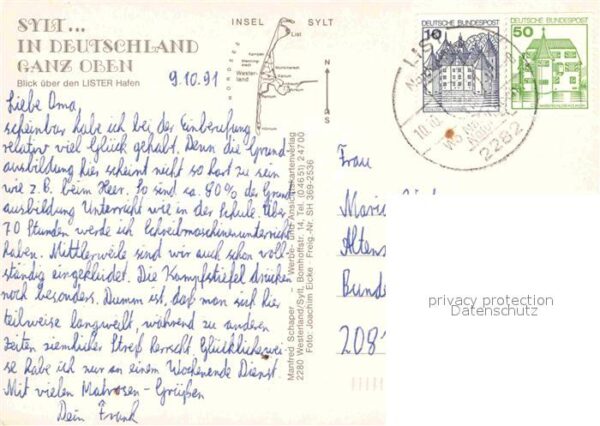 SYLT...
IN DEUTSCHLAND
GANZ OBEN
Blick über den LISTER Hafen
INSEL SYLT
NORDSEE
List
Kampen
Westerland
N
S
10 DEUTSCHE BUNDESPOST
50 DEUTSCHE BUNDESPOST
2282
9.10.91
Liebe Oma,
scheinbar habe ich bei der Einberufung
relativ viel Glück gehabt. Denn die Grund-
ausbildung hier scheint nicht so hart zu sein
wie z.B. beim Heer. So sind ca. 90% der Grund
ausbildung Unterricht wie in der Schule. Über
70 Stunden werde ich Schreibmaschinenunterricht
haben. Mittlerweile sind wir auch schon voll-
ständig eingekleidet. Die Kampfstiefel drücken
noch besonders. Dumm ist, daß man sich hier
teilweise langweilt, während zu anderen
Zeiten ziemlicher Streß herrscht. Glücklicherwei-
se habe ich nur an einem Wochenende Dienst.
Mit vielen Matrosen-Grüßen
Dein Frank
Manfred Schaper - Werbe- und Ansichtskartenverlag
2280 Westerland/Sylt, Bomhoffstr. 14, Tel. (04651) 24700
Foto: Joachim Ecke - Freig.-Nr. SH 369-2536
Frau
Altens
Bund
208
privacy protection
Datenschutz